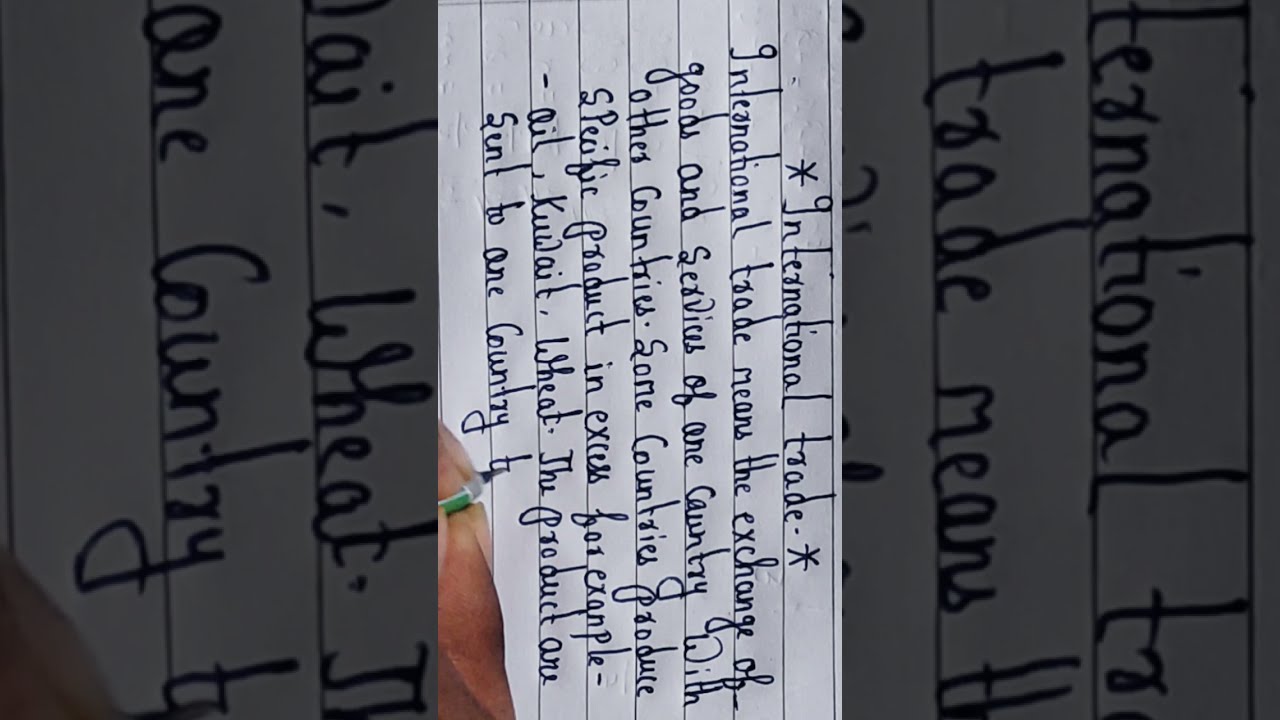 * International trade-*
International trade means the exchange of-
goods and Services of one Country With
other Countries. Some Countries produce
Specific product in excess for example-
- oil, Kuwait, Wheat. The product are
Sent to one Country t